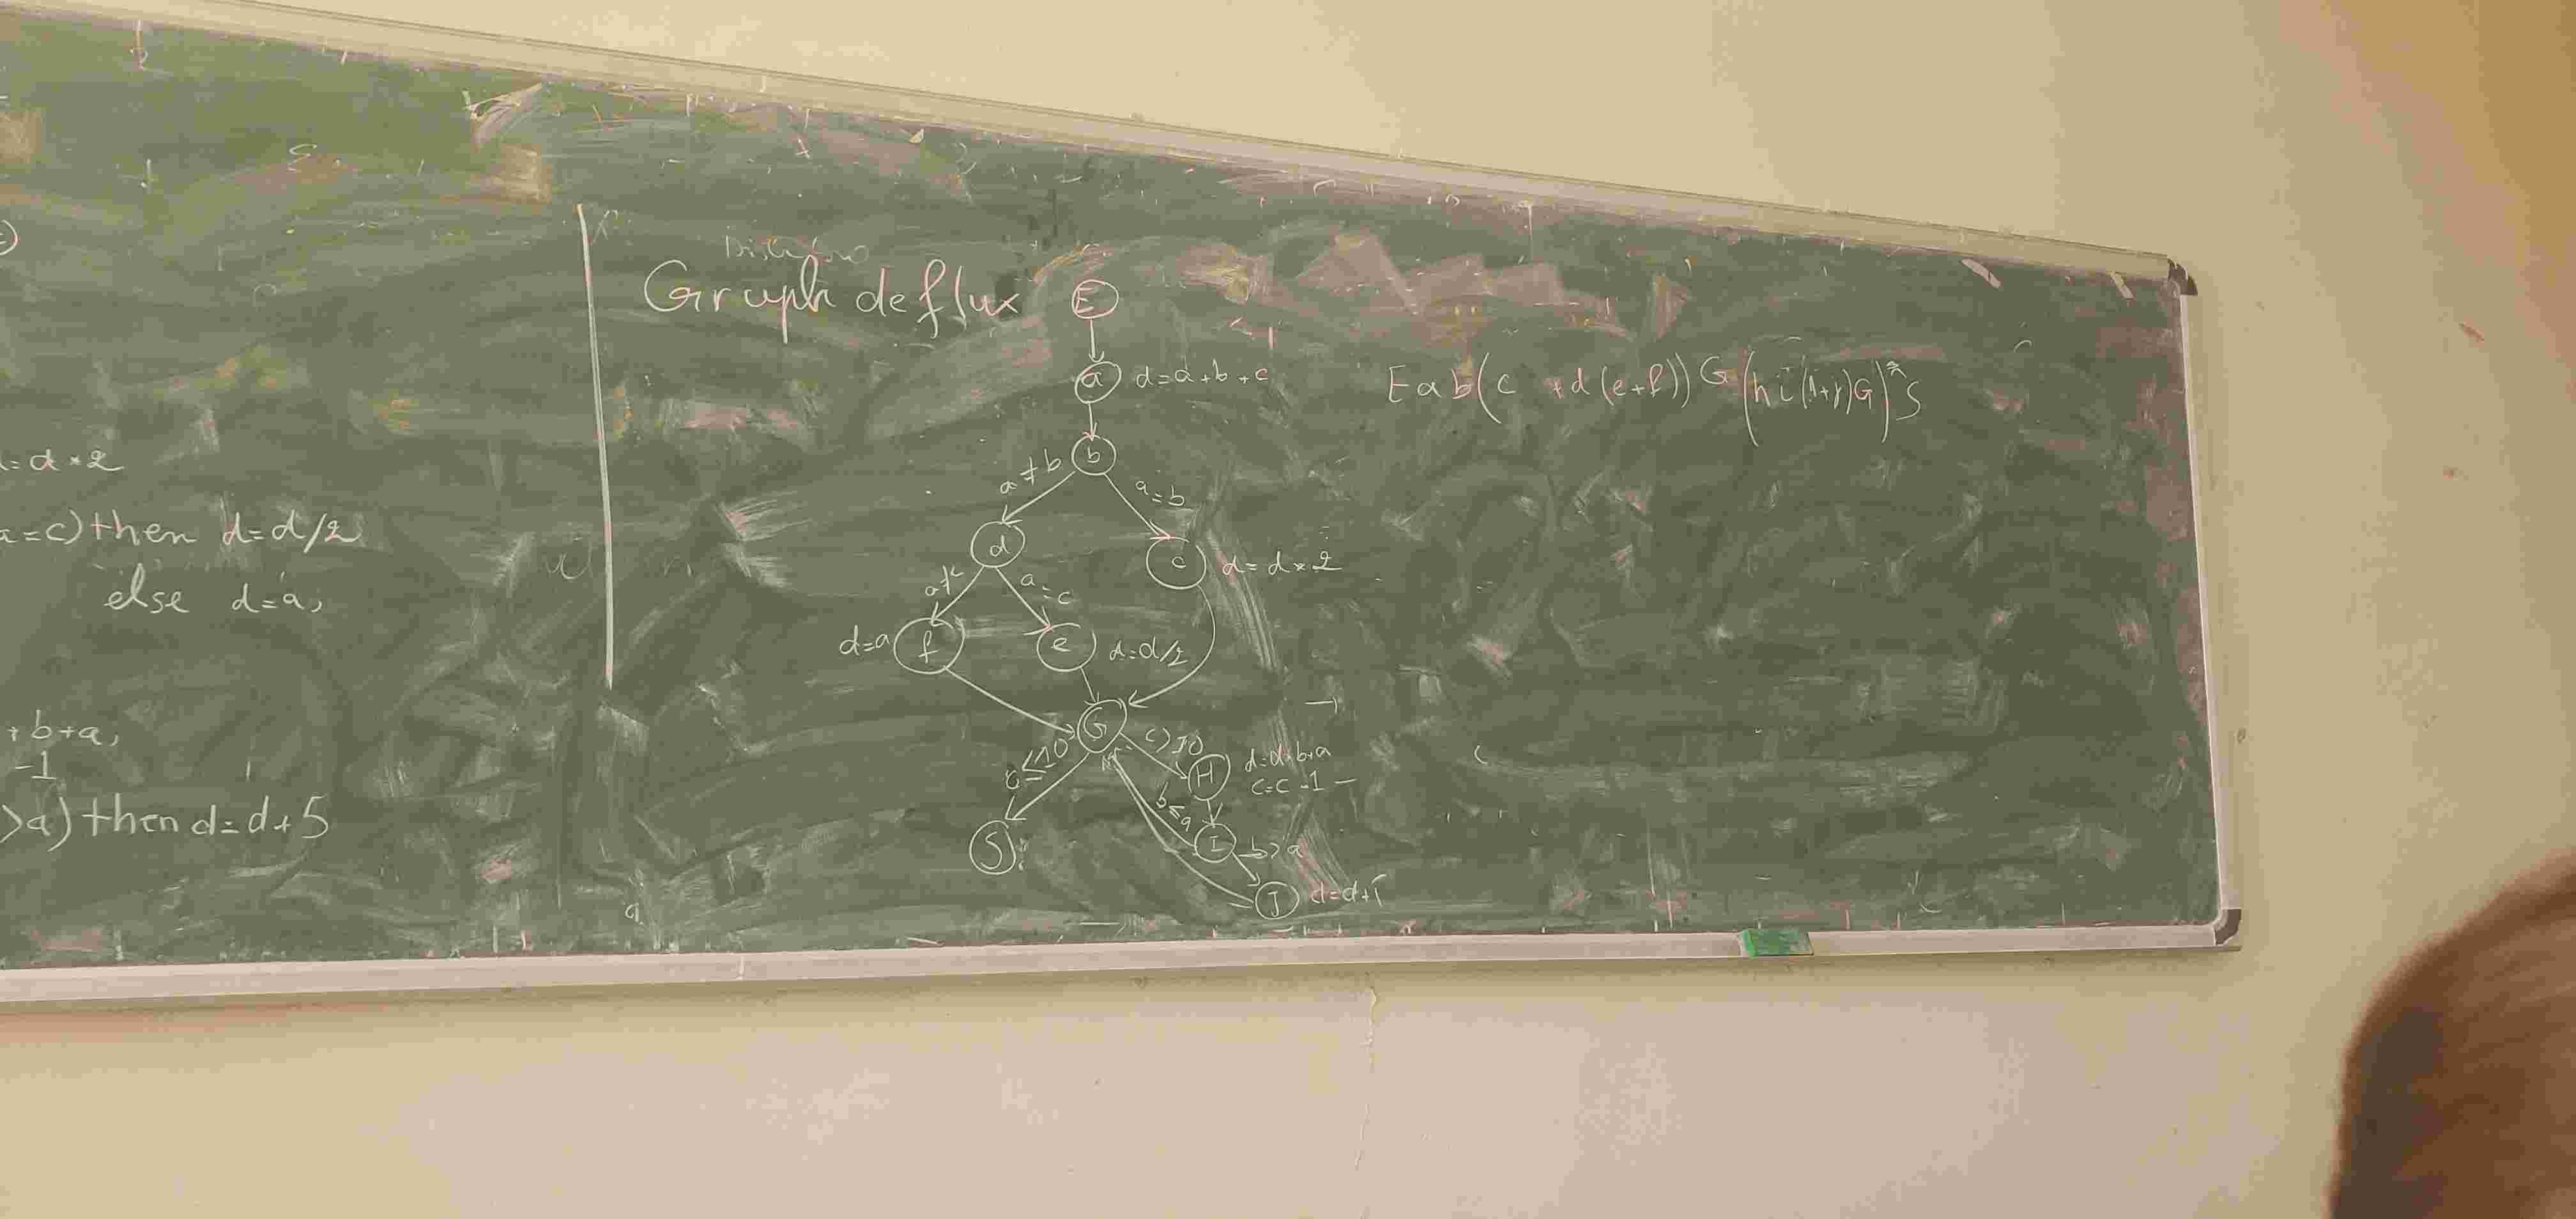 d*2
=c) then d=d/2
else d=a,
+b+a,
-1
>a) then d=d+5
Graph de flux
E
a d=a+b+c
b
a≠b a=b
d
c d=d*2
a=c
d=a f
e d=d/2
G
c>10
H d=d+b+a
c=c-1
b≤a
S
I b>a
J
Eab(c+d(e+f))G(hi(1+j)G)*S